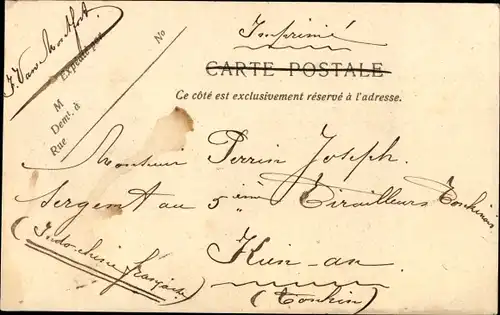 Imprimé
CARTE POSTALE
Ce côté est exclusivement réservé à l'adresse.
J. Van Montfort
Expédié par
M
Demt. à
Rue No
Monsieur Perrin Joseph.
Sergent au 5ième Tirailleurs Tonkinois
(Indo-chine française) Kien-an
(Tonkin)